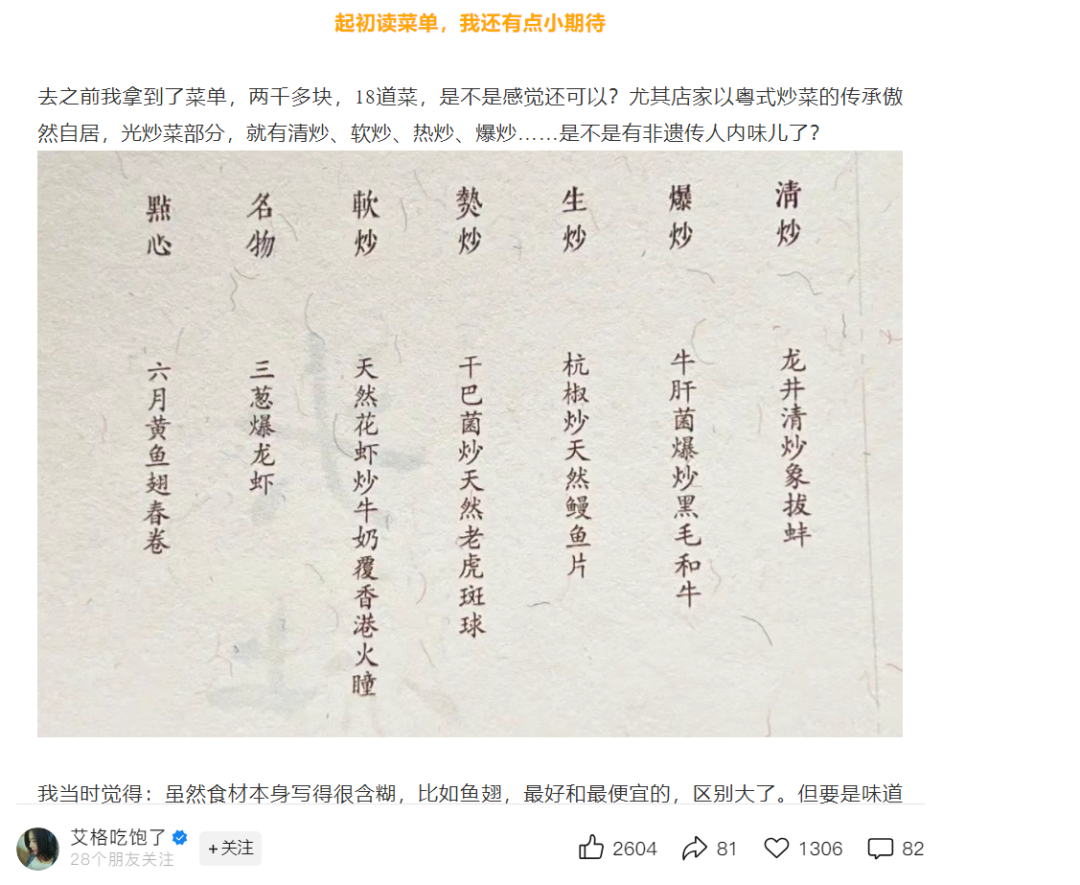 起初读菜单，我还有点小期待
去之前我拿到了菜单，两千多块，18道菜，是不是感觉还可以？尤其店家以粤式炒菜的传承傲
然自居，光炒菜部分，就有清炒、软炒、热炒、爆炒……是不是有非遗传人内味儿了？
清炒
龙井清炒象拔蚌
爆炒
牛肝菌爆炒黑毛和牛
生炒
杭椒炒天然鳗鱼片
熱炒
干巴菌炒天然老虎斑球
軟炒
天然花虾炒牛奶覆香港火瞳
名物
三葱爆龙虾
點心
六月黄鱼翅春卷
我当时觉得：虽然食材本身写得很含糊，比如鱼翅，最好和最便宜的，区别大了。但要是味道
艾格吃饱了
+关注
28个朋友关注
2604 81 1306 82